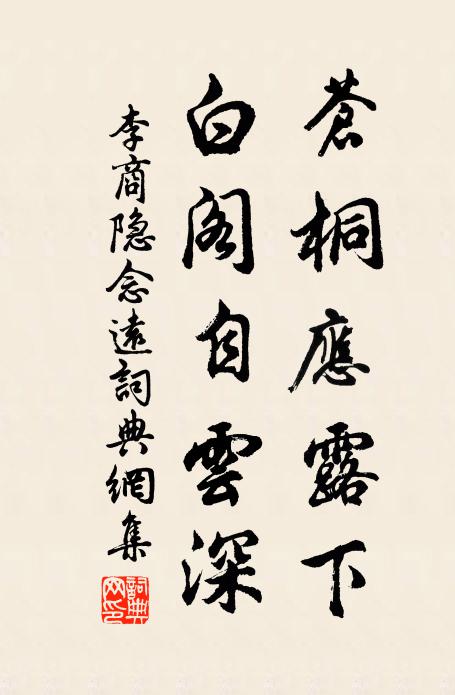 蒼桐應露下
白阁自雲深
李商隐念遠詞典網集
詞典
网印